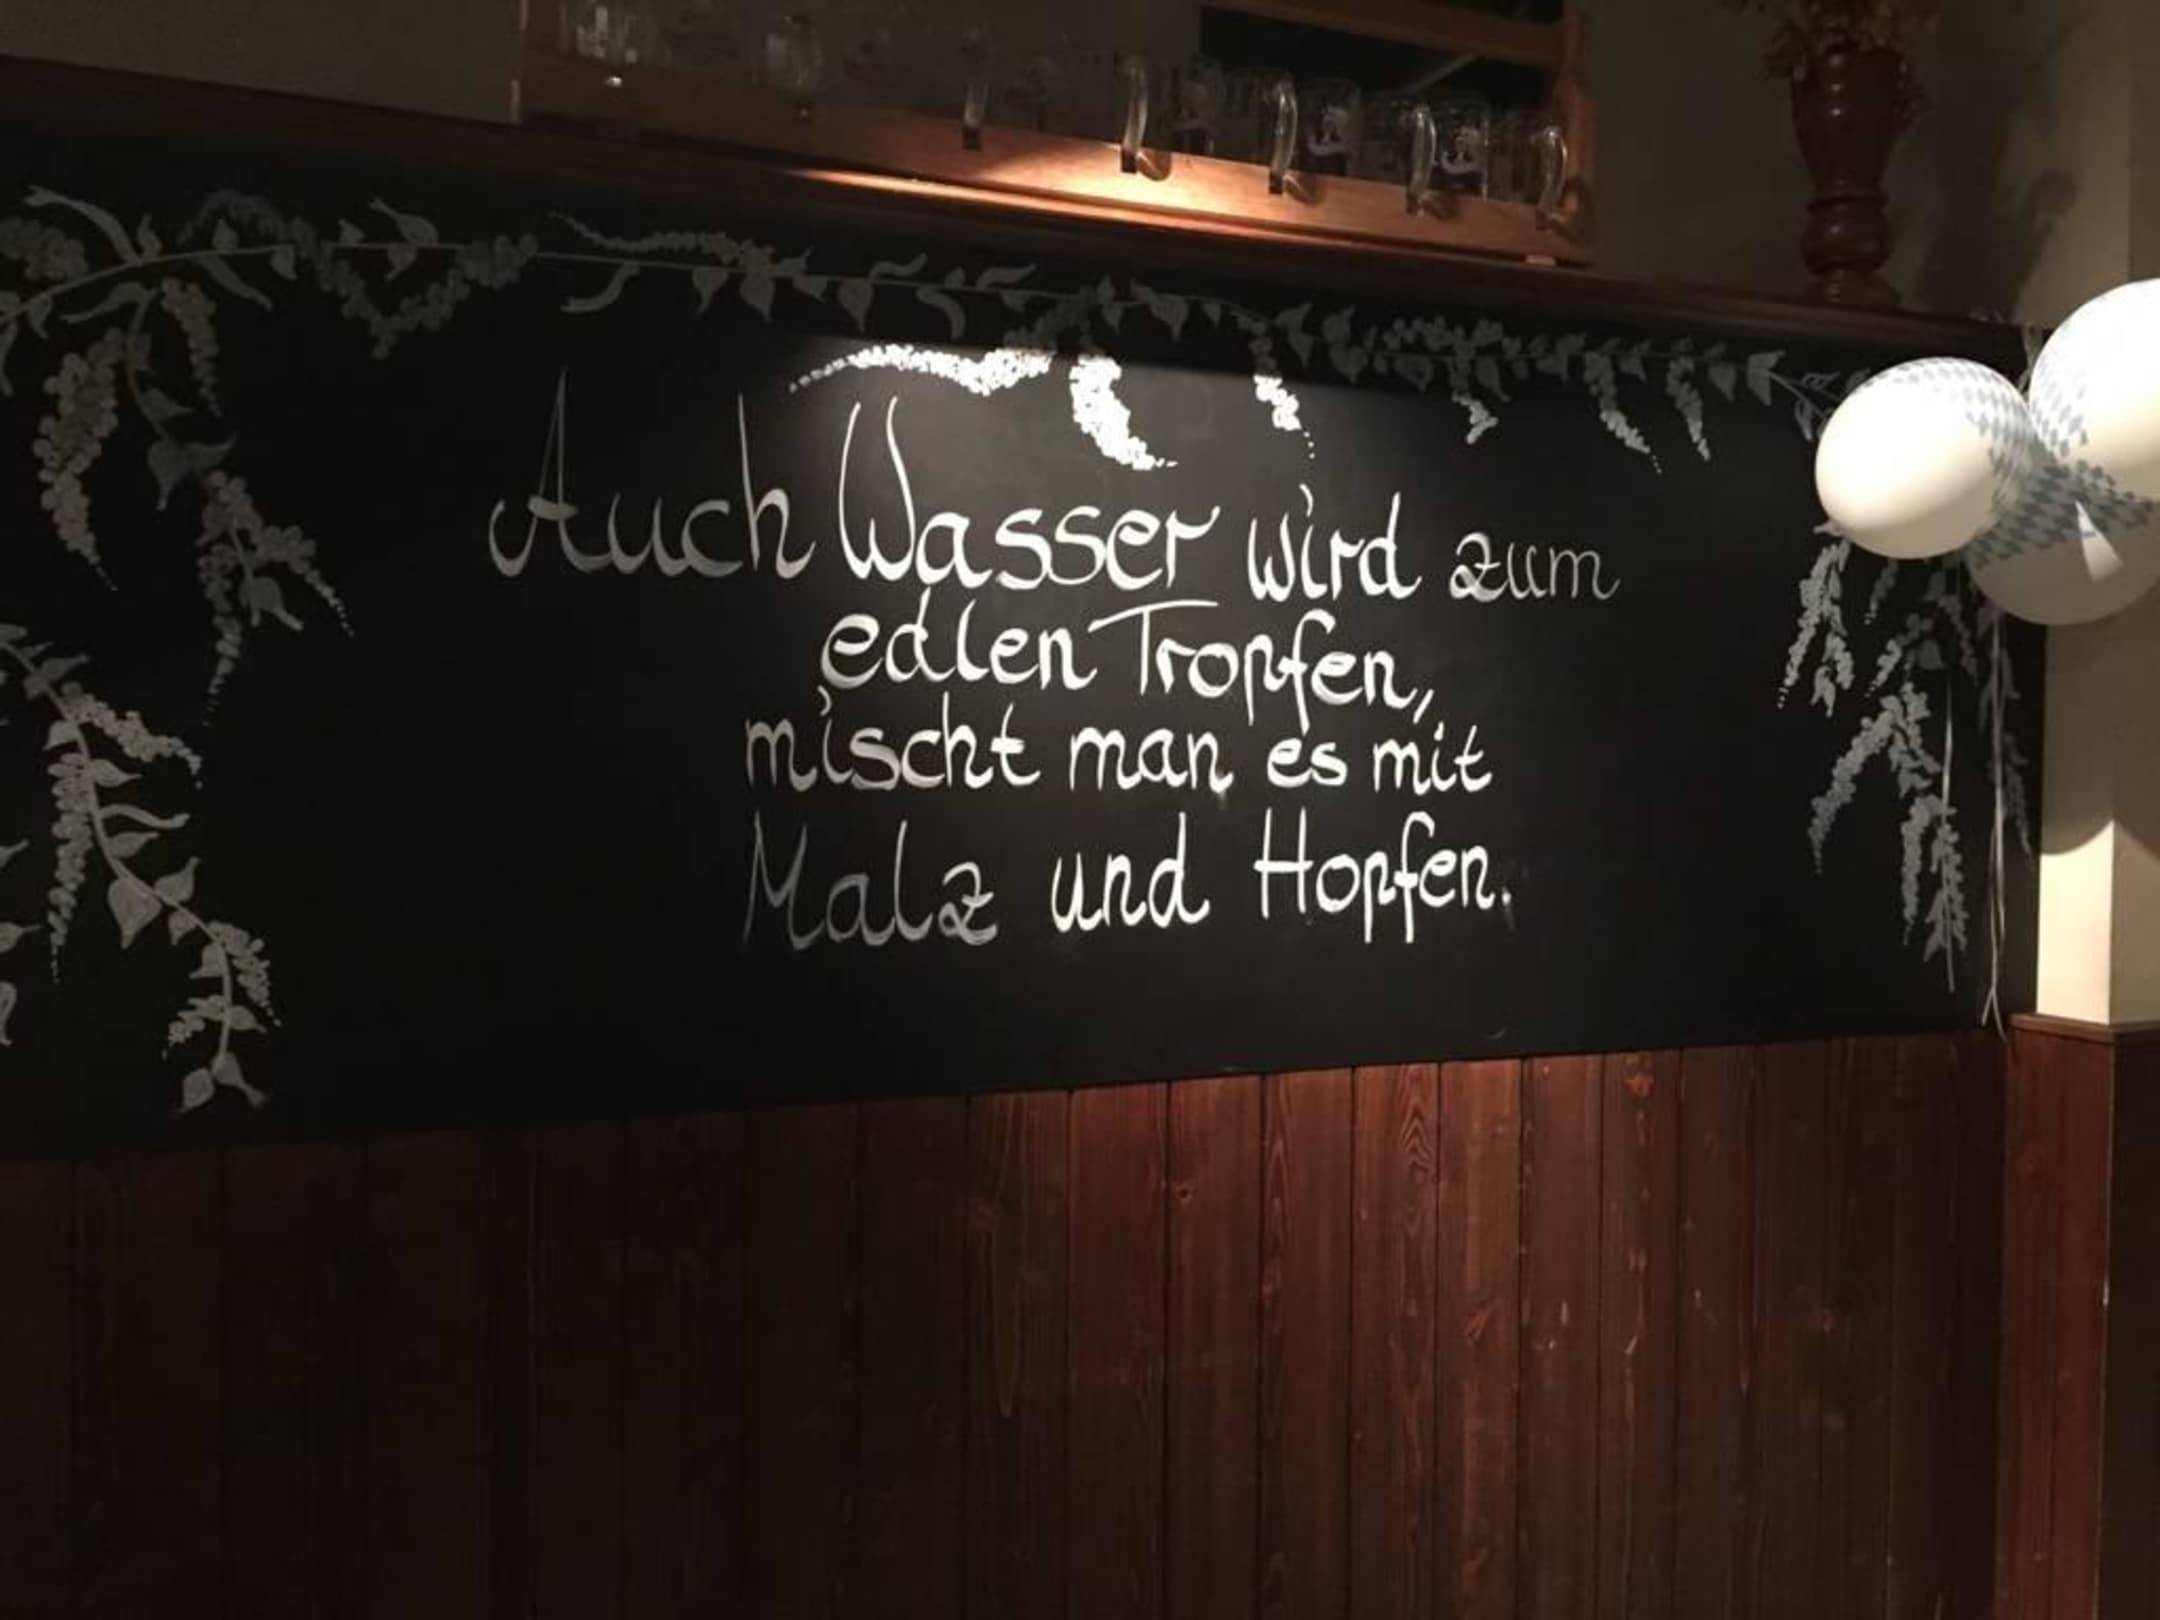 Auch Wasser wird zum
edlen Tropfen,
mischt man es mit
Malz und Hopfen.